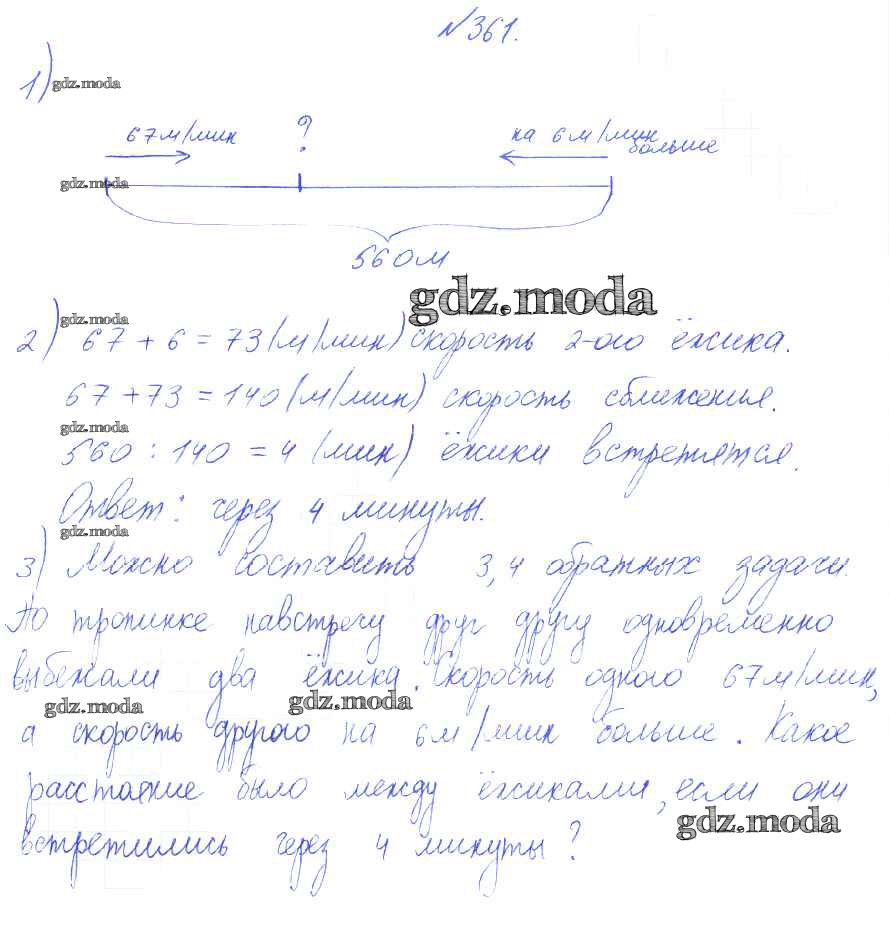 №361.
1) gdz.moda
67м/мин ? на 6м/мин
больше
gdz.moda
560м
gdz.moda
gdz.moda
2) 67 + 6 = 73 (м/мин) скорость 2-ого ёжика.
67 + 73 = 140 (м/мин) скорость сближенья.
gdz.moda
560 : 140 = 4 (мин) ёжики встретятся.
Ответ: через 4 минуты.
gdz.moda
3) Можно составить 3,4 обратных задачи.
По тропинке навстречу друг другу одновременно
выбежали два ёжика. Скорость одного 67м/мин,
gdz.moda gdz.moda
а скорость другого на 6м/мин больше. Какое
расстояние было между ёжиками, если они
gdz.moda
встретились через 4 минуты?